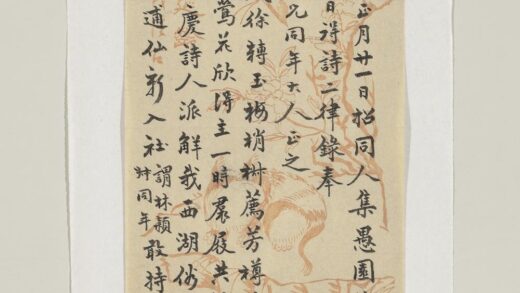 正月廿一日招同人集愚園
日得詩二律錄奉
兄同年大人正之
徐轉玉梅梢拼薦芳樽
鶯花欣得主一時羣屐共
慶詩人派解我西湖
逋仙新入社謂林穎叔同年敢持